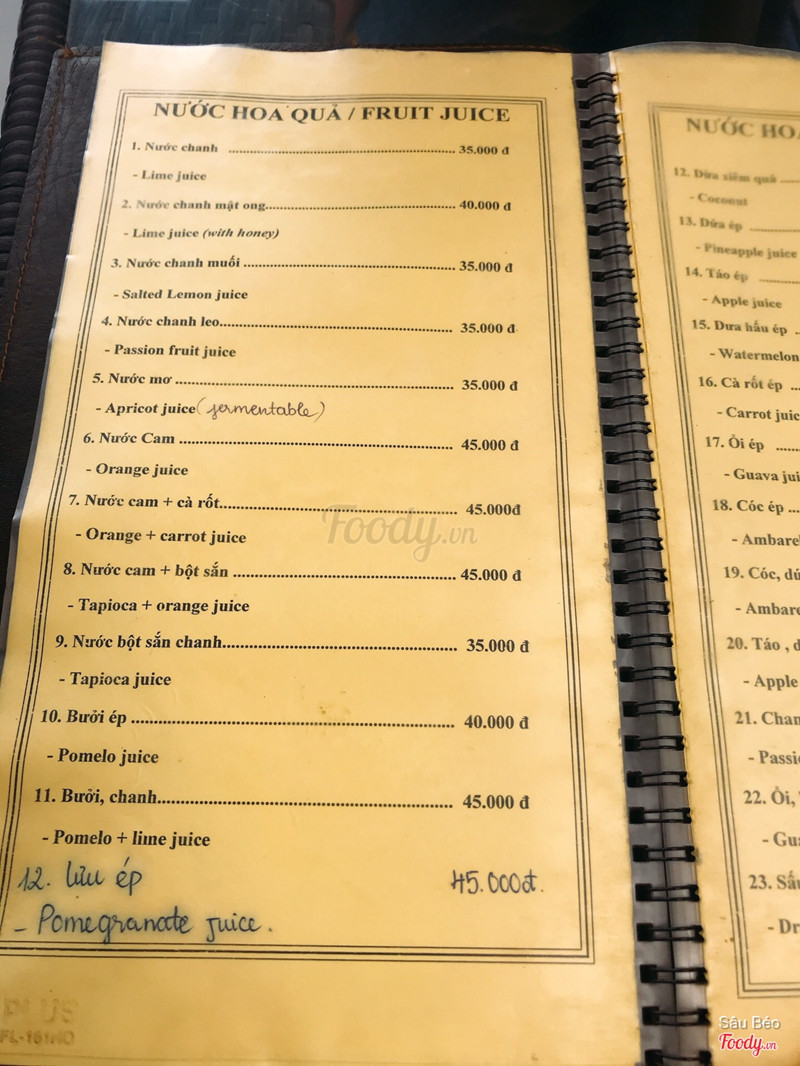 NƯỚC HOA QUẢ / FRUIT JUICE
1. Nước chanh ........ 35.000 đ
- Lime juice
2. Nước chanh mật ong........ 40.000 đ
- Lime juice (with honey)
3. Nước chanh muối ........ 35.000 đ
- Salted Lemon juice
4. Nước chanh leo........ 35.000 đ
- Passion fruit juice
5. Nước mơ ........ 35.000 đ
- Apricot juice (fermentable)
6. Nước Cam ........ 45.000 đ
- Orange juice
7. Nước cam + cà rốt........ 45.000đ
- Orange + carrot juice
8. Nước cam + bột sắn ........ 45.000 đ
- Tapioca + orange juice
9. Nước bột sắn chanh........ 35.000 đ
- Tapioca juice
10. Bưởi ép ........ 40.000 đ
- Pomelo juice
11. Bưởi, chanh........ 45.000 đ
- Pomelo + lime juice
12. Lựu ép 45.000đ.
- Pomegranate juice.
PLUS
Foody.vn
NƯỚC
12. Dừa xiêm quả ....
- Coconut
13. Dứa ép ........
- Pineapple juice
14. Táo ép ........
- Apple juice
15. Dưa hấu ép ..
- Watermelon
16. Cà rốt ép ....
- Carrot
17. Ổi ép ......
- Guava
18. Cóc ép ...
19. Cóc,
20. Táo ,
- Apple
21.
22. Ổi,
23.
Sâu Béo
Foody.vn